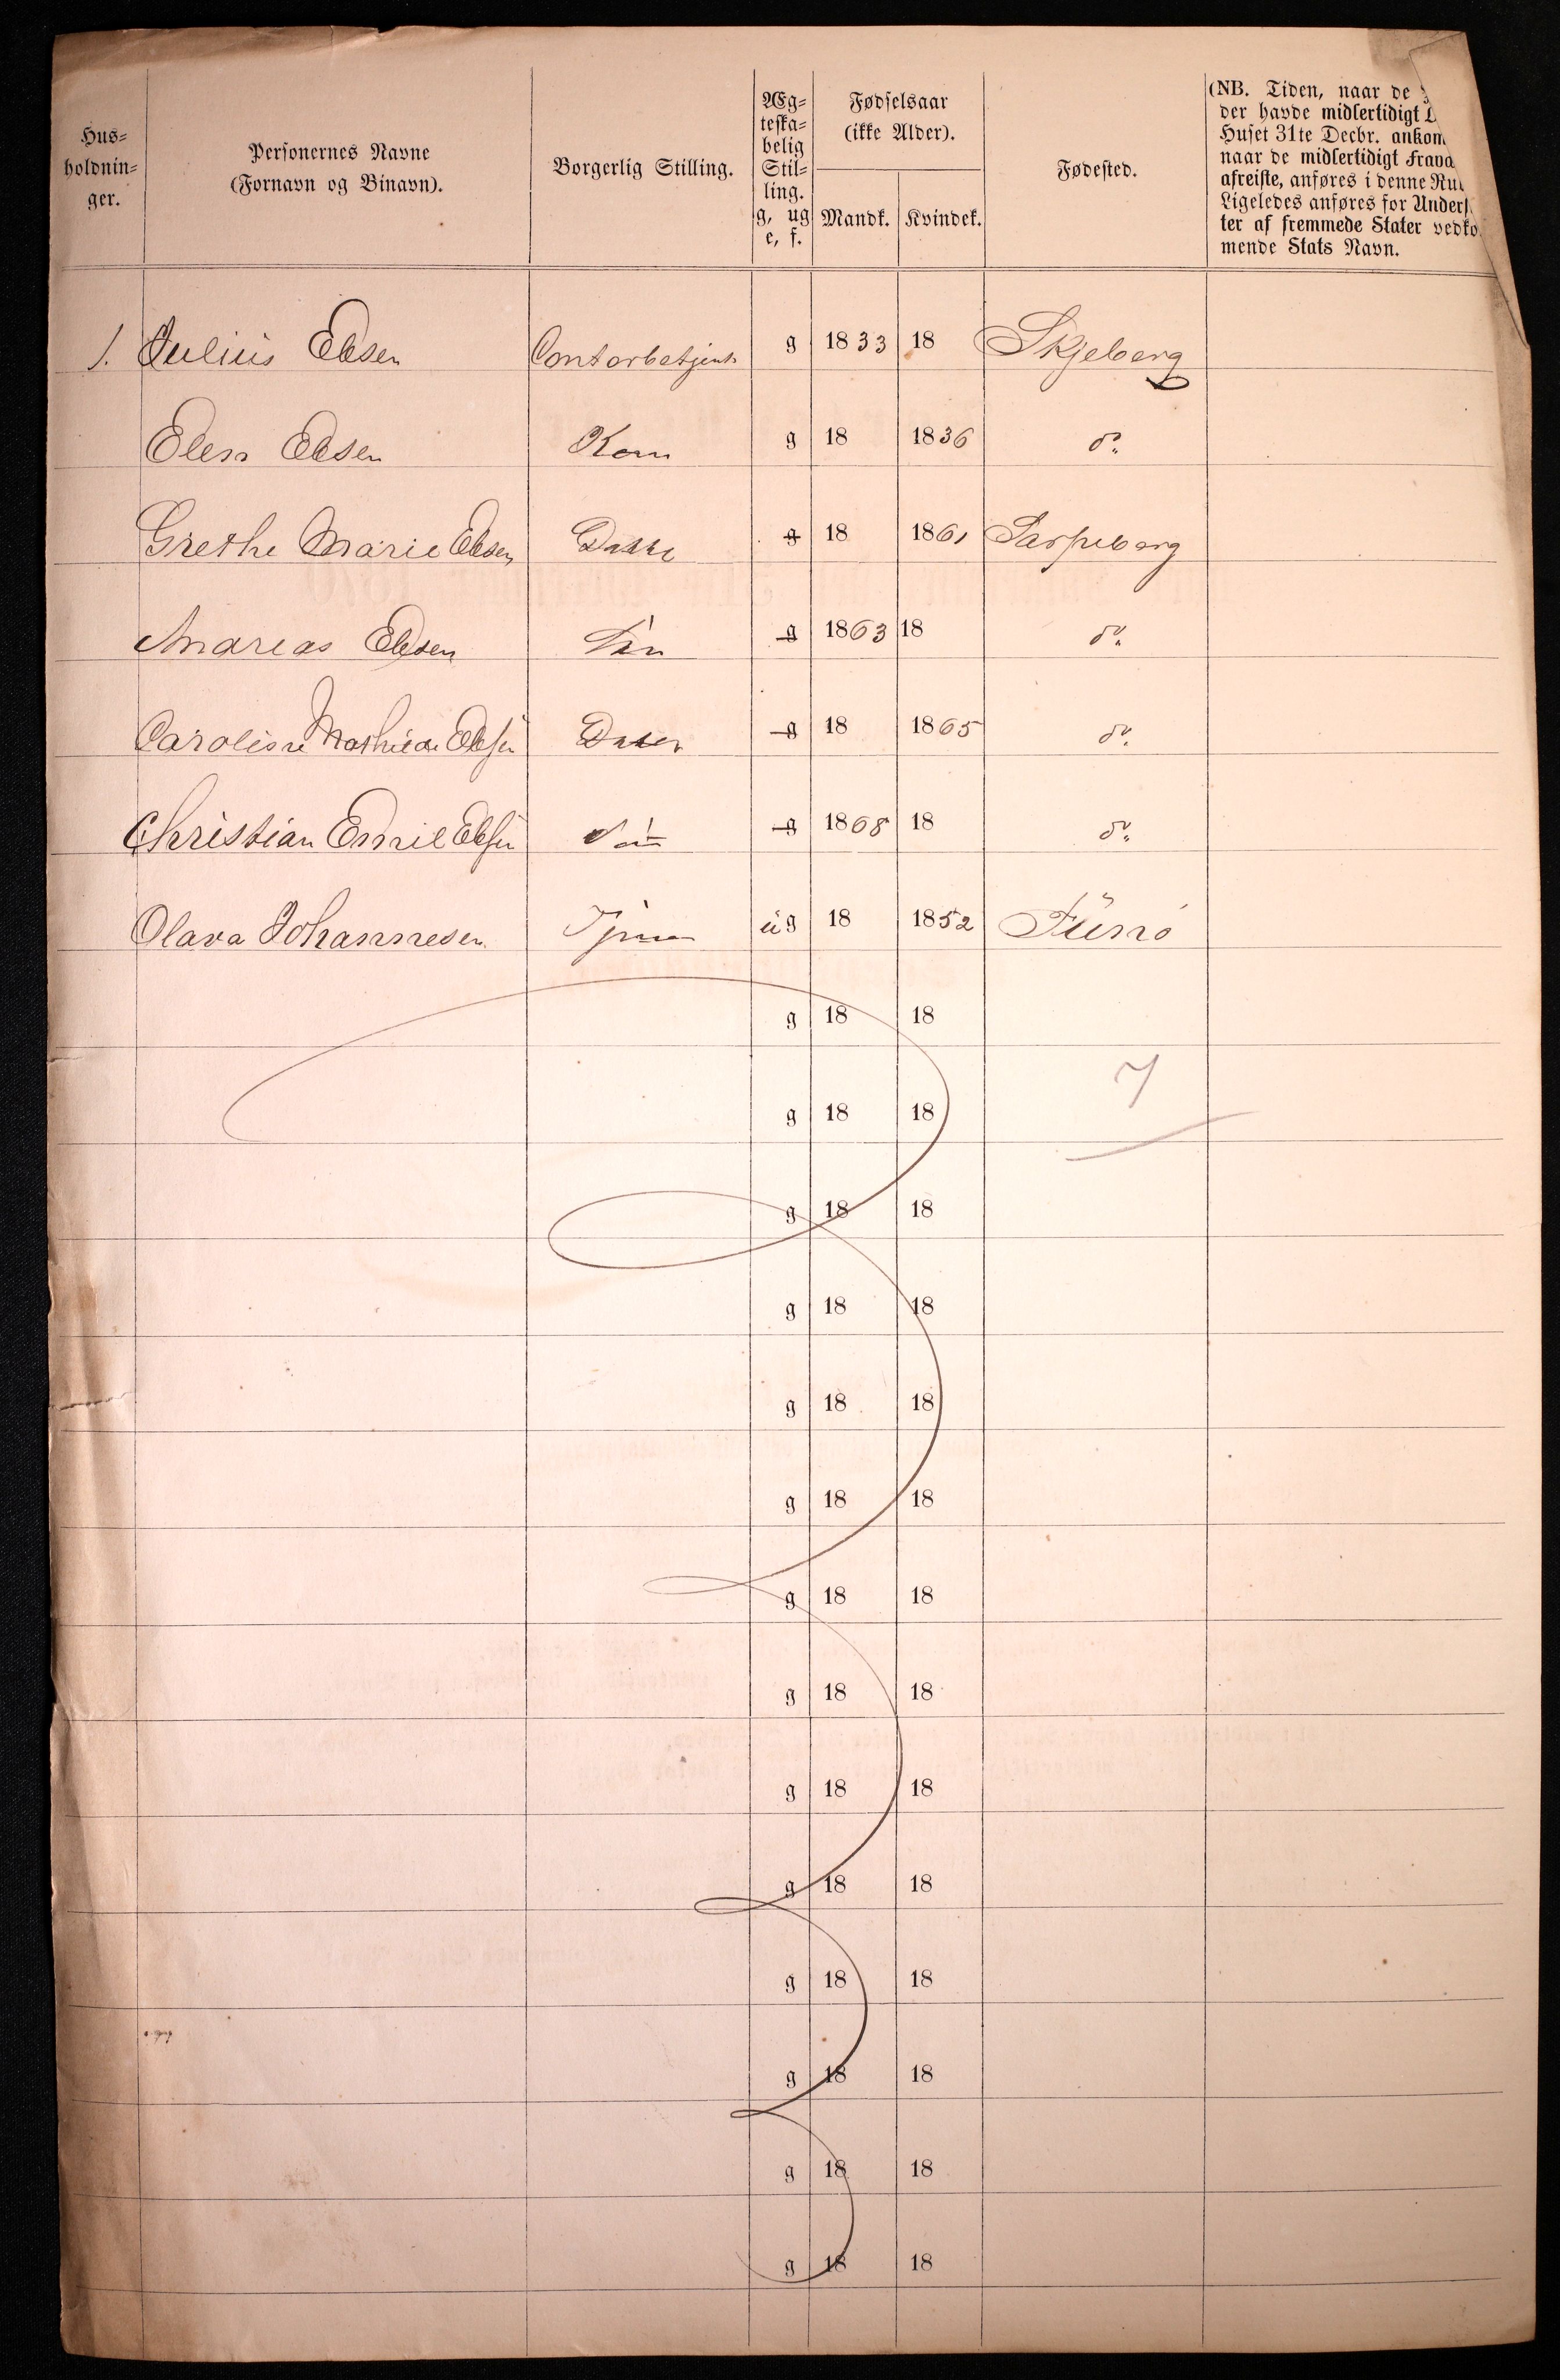 Hus-
holdnin-
ger.
Personernes Navne
(Fornavn og Binavn).
Borgerlig Stilling.
Æg-
teska-
belig
Stil-
ling.
g, ug
e, f.
Fødselsaar
(ikke Alder).
Mandk. Kvindek.
Fødested.
(NB. Tiden, naar de
der havde midlertidigt
Huset 31te Decbr. ankom
naar de midlertidigt
afreiste, anføres i denne
Ligeledes anføres for
ter af fremmede Stater
mende Stats Navn.
1. Julius Ebsen g 1833 18 Skjeberg
Elen Ebsen Kone g 18 1836 do.
Grethe Marie Ebsen Datter g 18 1861 Sarpsborg
Andreas Ebsen Søn g 1863 18 do.
Caroline Mathilde Ebsen Datter g 18 1865 do.
Christian Emil Ebsen Søn g 1868 18 do.
Olava Johannesen ug 18 1852
g 18 18
7
g 18 18
g 18 18
g 18 18
g 18 18
g 18 18
g 18 18
g 18 18
g 18 18
g 18 18
g 18 18
g 18 18
g 18 18
g 18 18